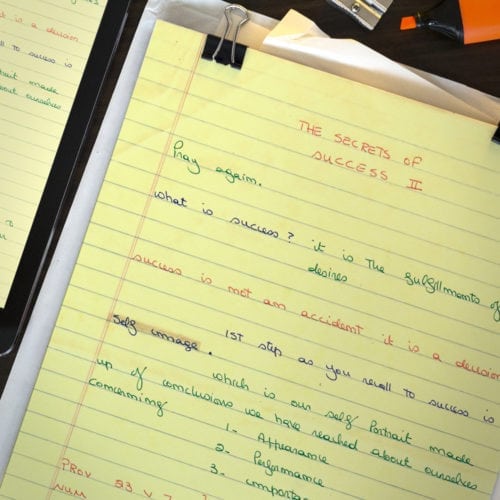 THE SECRETS OF
SUCCESS II
Pray again.
What is success? it is the fulfillments of
desires
success is not an accident it is a decision
Self image. 1ST step as you recall to success is
which is our self Portrait made
up of conclusions we have reached about ourselves
concerning
1- Appearance
2- Performance
3- importa
PROV 23 V 7
NUM
is a decision
to success is
Portrait made
about ourselves